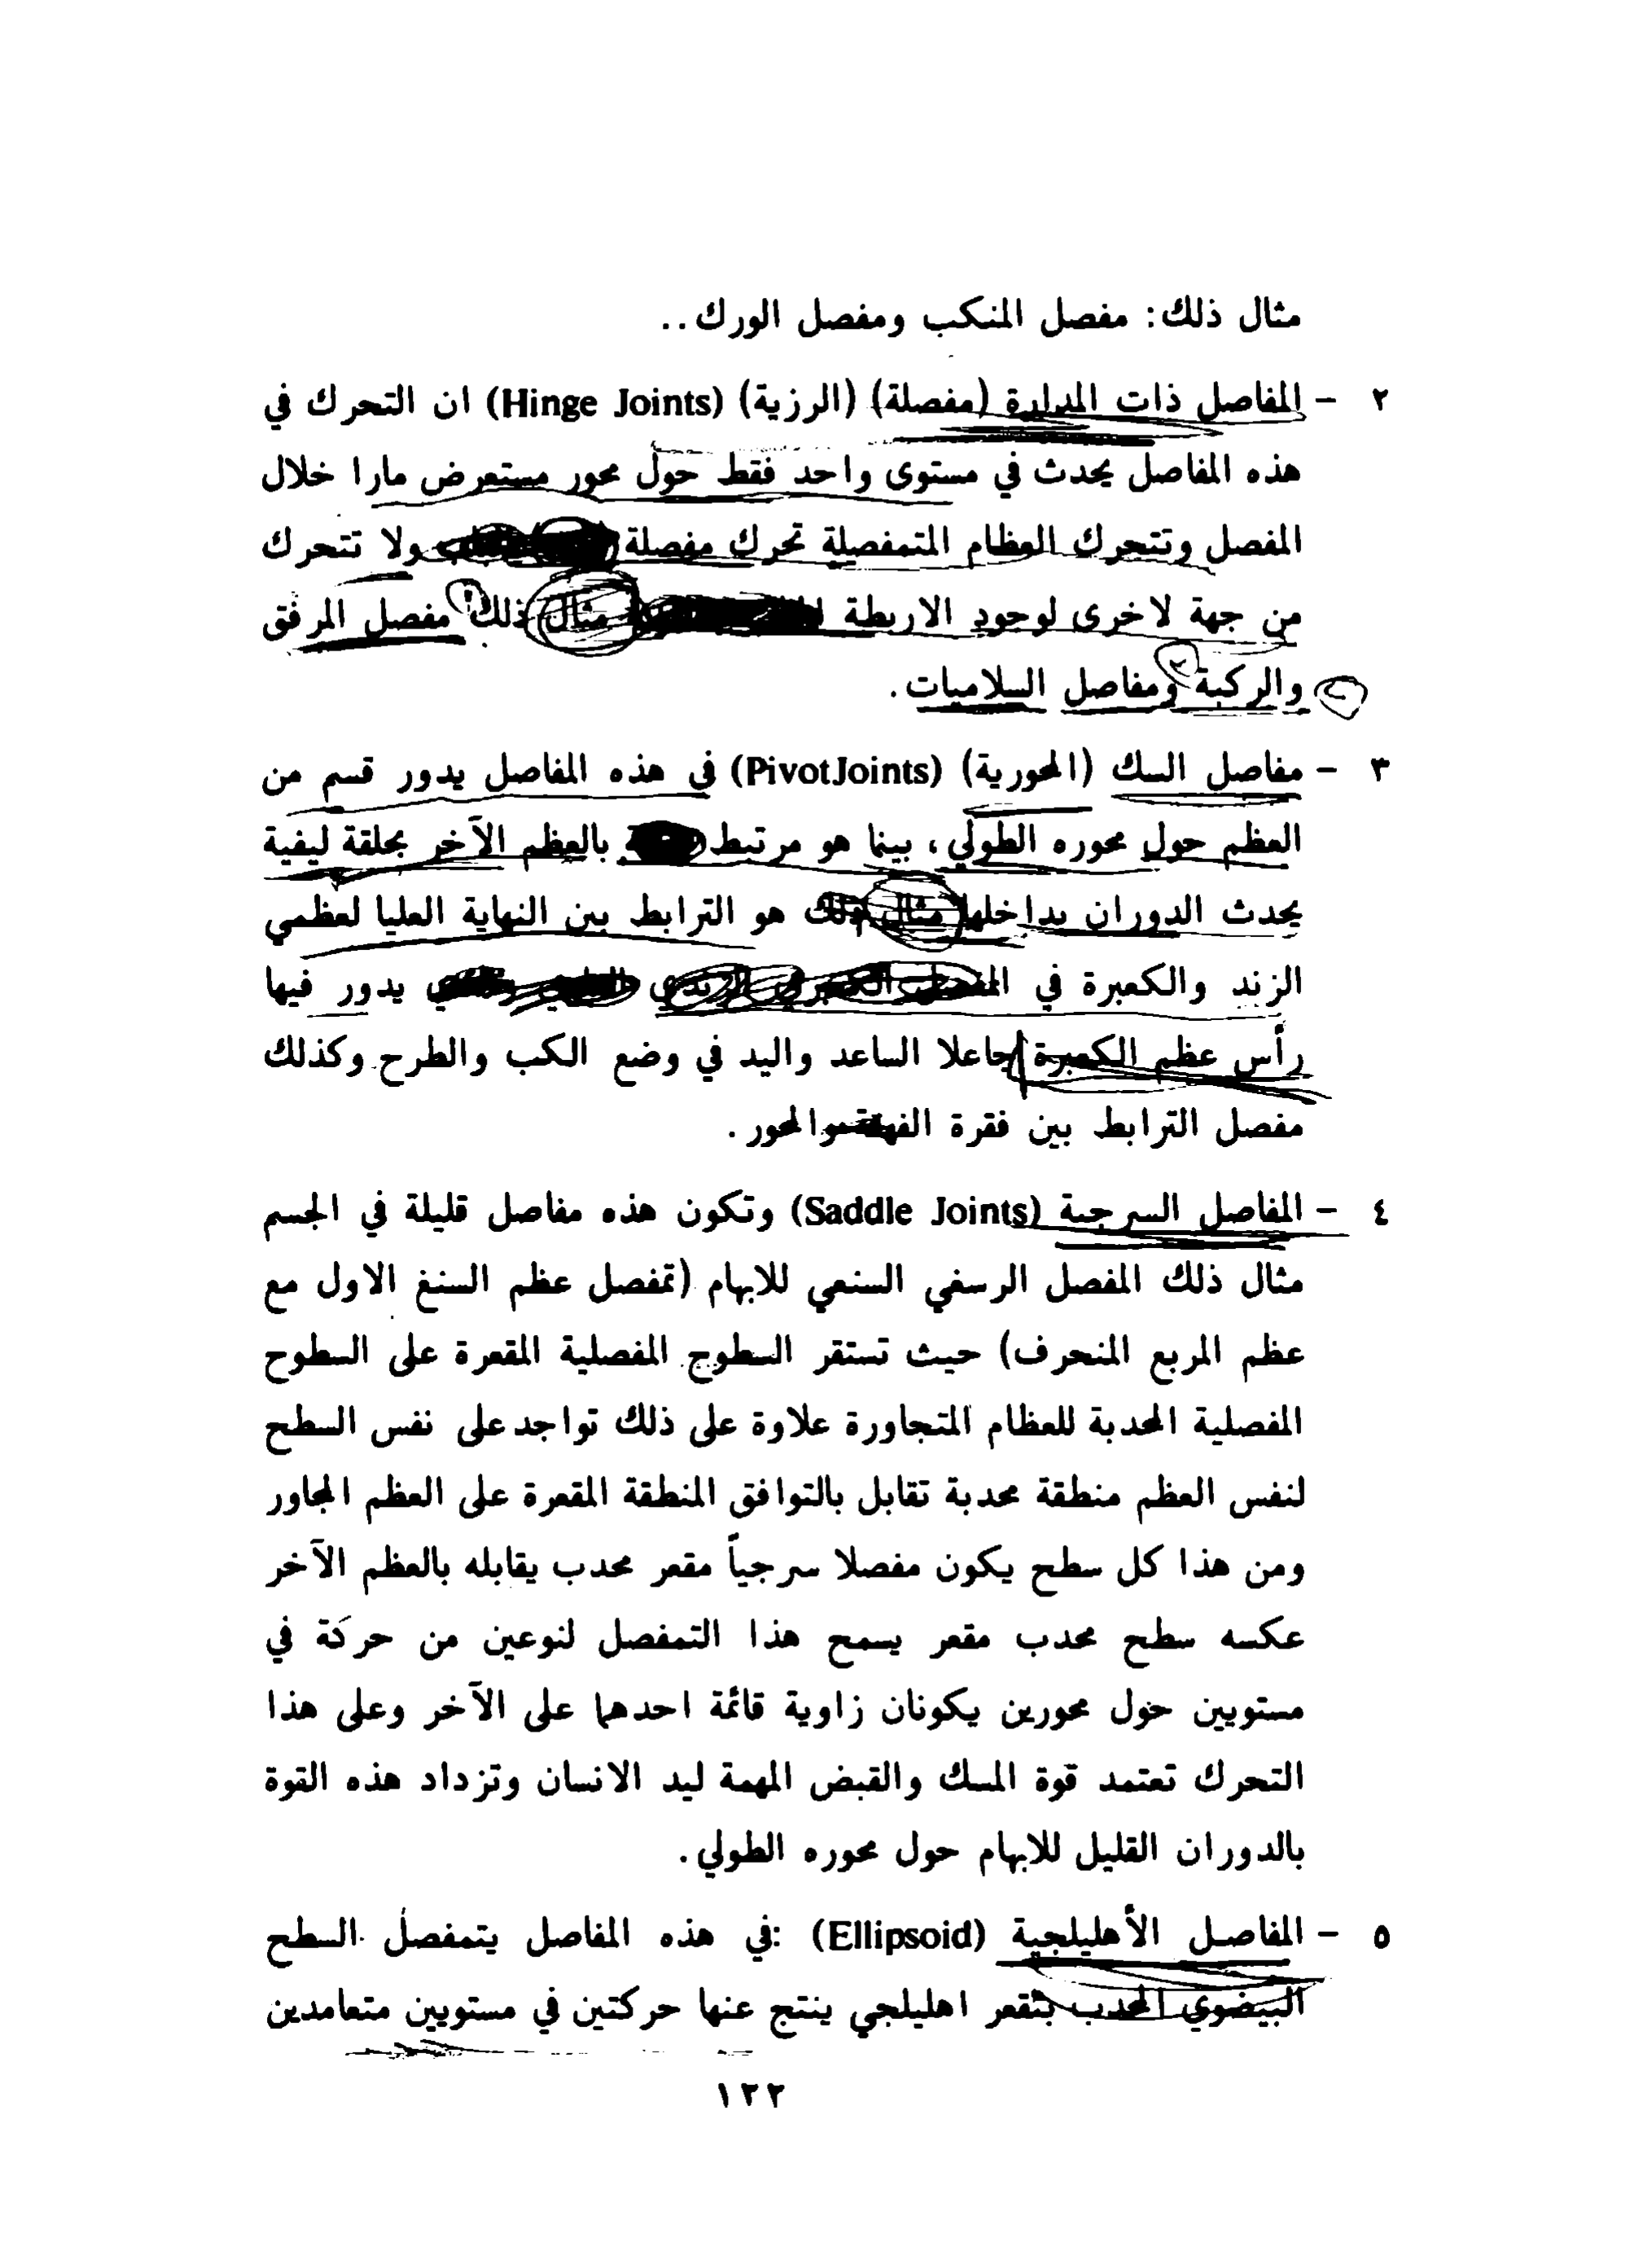 مثال ذلك: مفصل المنكب ومفصل الورك..
٢ - المفاصل ذات المدارة (مفصلة) (الرزية) (Hinge Joints) ان التحرك في
هذه المفاصل يحدث في مستوى واحد فقط حول محور مستعرض مارا خلال
المفصل وتتحرك العظام المتمفصلة تحرك مفصلة ولا تتحرك
من جهة لاخرى لوجود الاربطة مثال ذلك مفصل المرفق
والركبة ومفاصل السلاميات.
٣ - مفاصل السك (المحورية) (PivotJoints) في هذه المفاصل يدور قسم من
العظم حول محوره الطولي، بينما هو مرتبط بالعظم الآخر بحلقة ليفية
يحدث الدوران بداخلها مثال ذلك هو الترابط بين النهاية العليا لعظمي
الزند والكعبرة في يدور فيها
رأس عظم الكعبرة جاعلا الساعد واليد في وضع الكب والطرح وكذلك
مفصل الترابط بين فقرة الفهقة والمحور.
٤ - المفاصل السرجية (Saddle Joints) وتكون هذه مفاصل قليلة في الجسم
مثال ذلك المفصل الرسغي السنعي للابهام (تمفصل عظم السنغ الاول مع
عظم المربع المنحرف) حيث تستقر السطوح المفصلية المقعرة على السطوح
المفصلية المحدبة للعظام المتجاورة علاوة على ذلك تواجد على نفس السطح
لنفس العظم منطقة محدبة تقابل بالتوافق المنطقة المقعرة على العظم المجاور
ومن هذا كل سطح يكون مفصلا سرجياً مقعر محدب يقابله بالعظم الآخر
عكسه سطح محدب مقعر يسمح هذا التمفصل لنوعين من حركة في
مستويين حول محورين يكونان زاوية قائمة احدهما على الآخر وعلى هذا
التحرك تعتمد قوة المسك والقبض المهمة ليد الانسان وتزداد هذه القوة
بالدوران القليل للابهام حول محوره الطولي.
٥ - المفاصل الأهليلجية (Ellipsoid) :في هذه المفاصل يتمفصل السطح
البيضوي المحدب بتقعر اهليلجي ينتج عنها حركتين في مستويين متعامدين
١٢٢